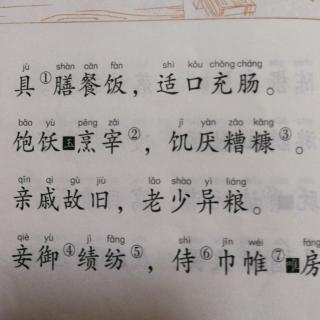 jù shàn cān fàn shì kǒu chōng cháng
具①膳餐饭，适口充肠。
bǎo yù pēng zǎi jī yàn zāo kāng
饱饫烹宰②，饥厌糟糠③。
qīn qi gù jiù lǎo shào yì liáng
亲戚故旧，老少异粮。
qiè yù jì fǎng shì jīn wéi fáng
妾御④绩纺⑤，侍⑥巾帷⑦房